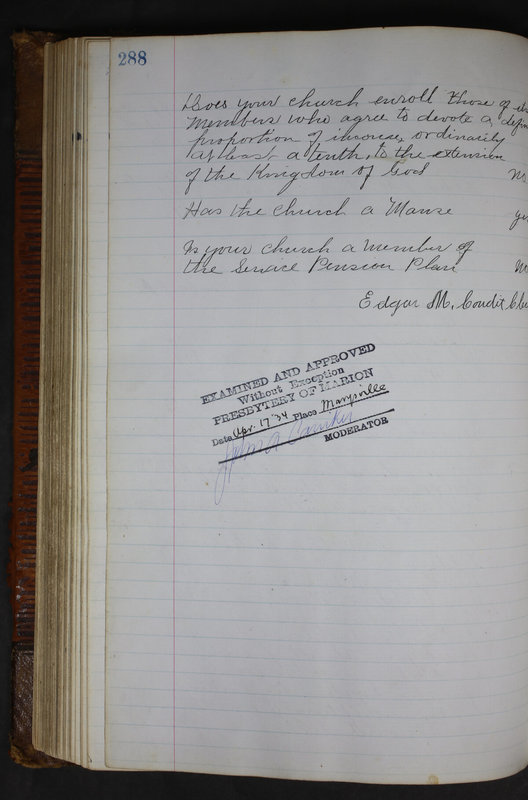 288
Does your church enroll those of its
members who agree to devote a
proportion of income, ordinarily
at least a tenth, to the extension
of the Kingdom of God
Has the church a Manse
Is your church a member of
the Service Pension Plan
Edgar M. Condit
EXAMINED AND APPROVED
Without Exception
PRESBYTERY OF MARION
Date Apr. 17 '34 Place Marysville
John A.
MODERATOR